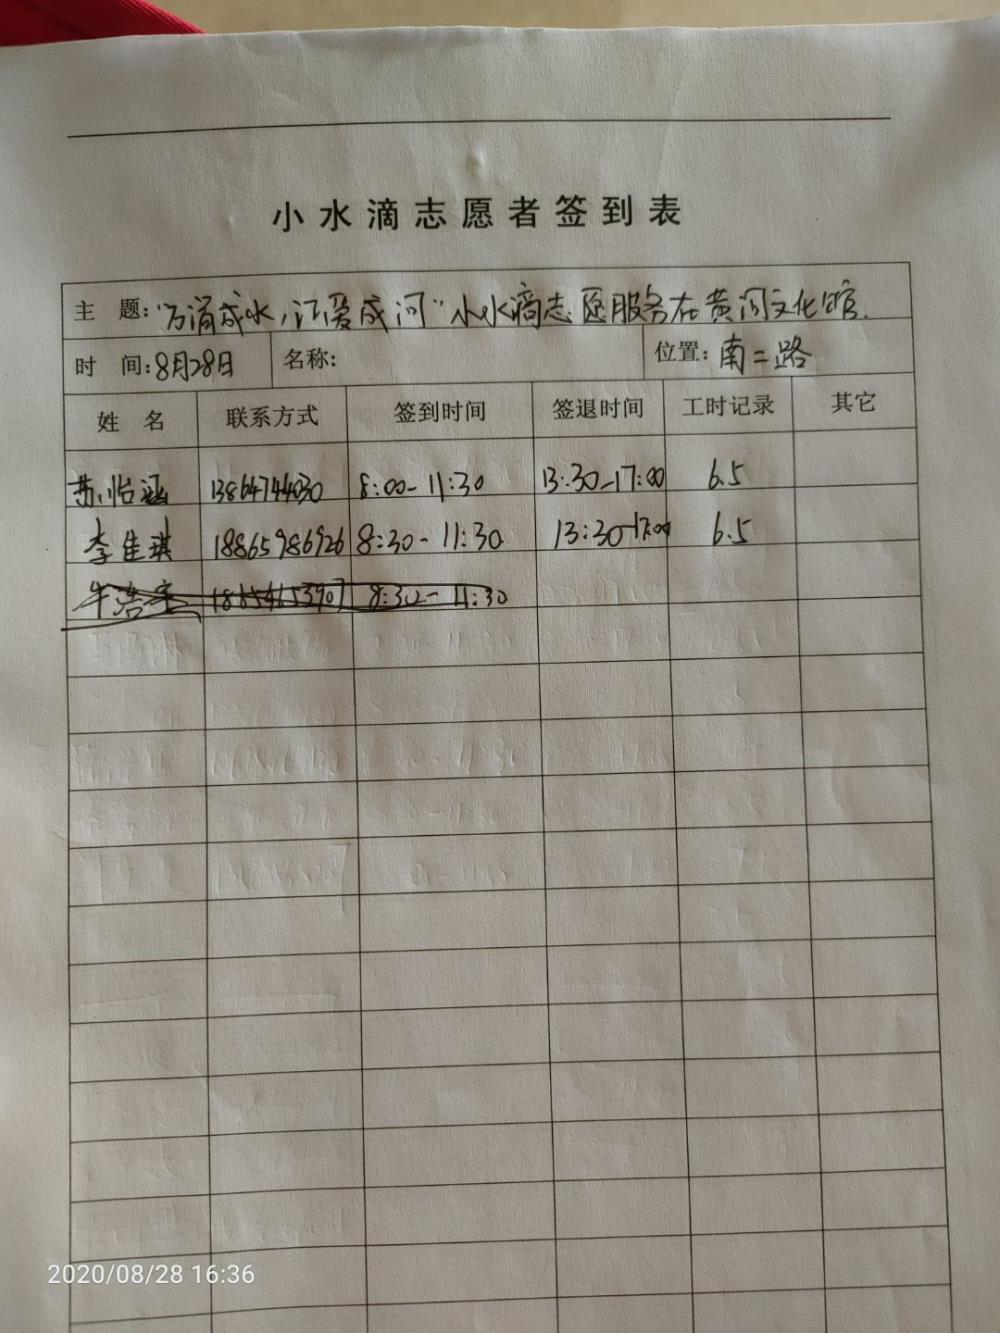 小水滴志愿者签到表
主 题：“万涓成水，汇爱成河”小水滴志愿服务在黄河文化馆.
时 间：8月28日 名称： 位置：南二路
姓 名 联系方式 签到时间 签退时间 工时记录 其它
苏怡涵 13864744030 8:00-11:30 13:30-17:00 6.5
李佳琪 18865986926 8:30-11:30 13:30-17:00 6.5
牛浩宇 18654653907 8:30-11:30
2020/08/28 16:36